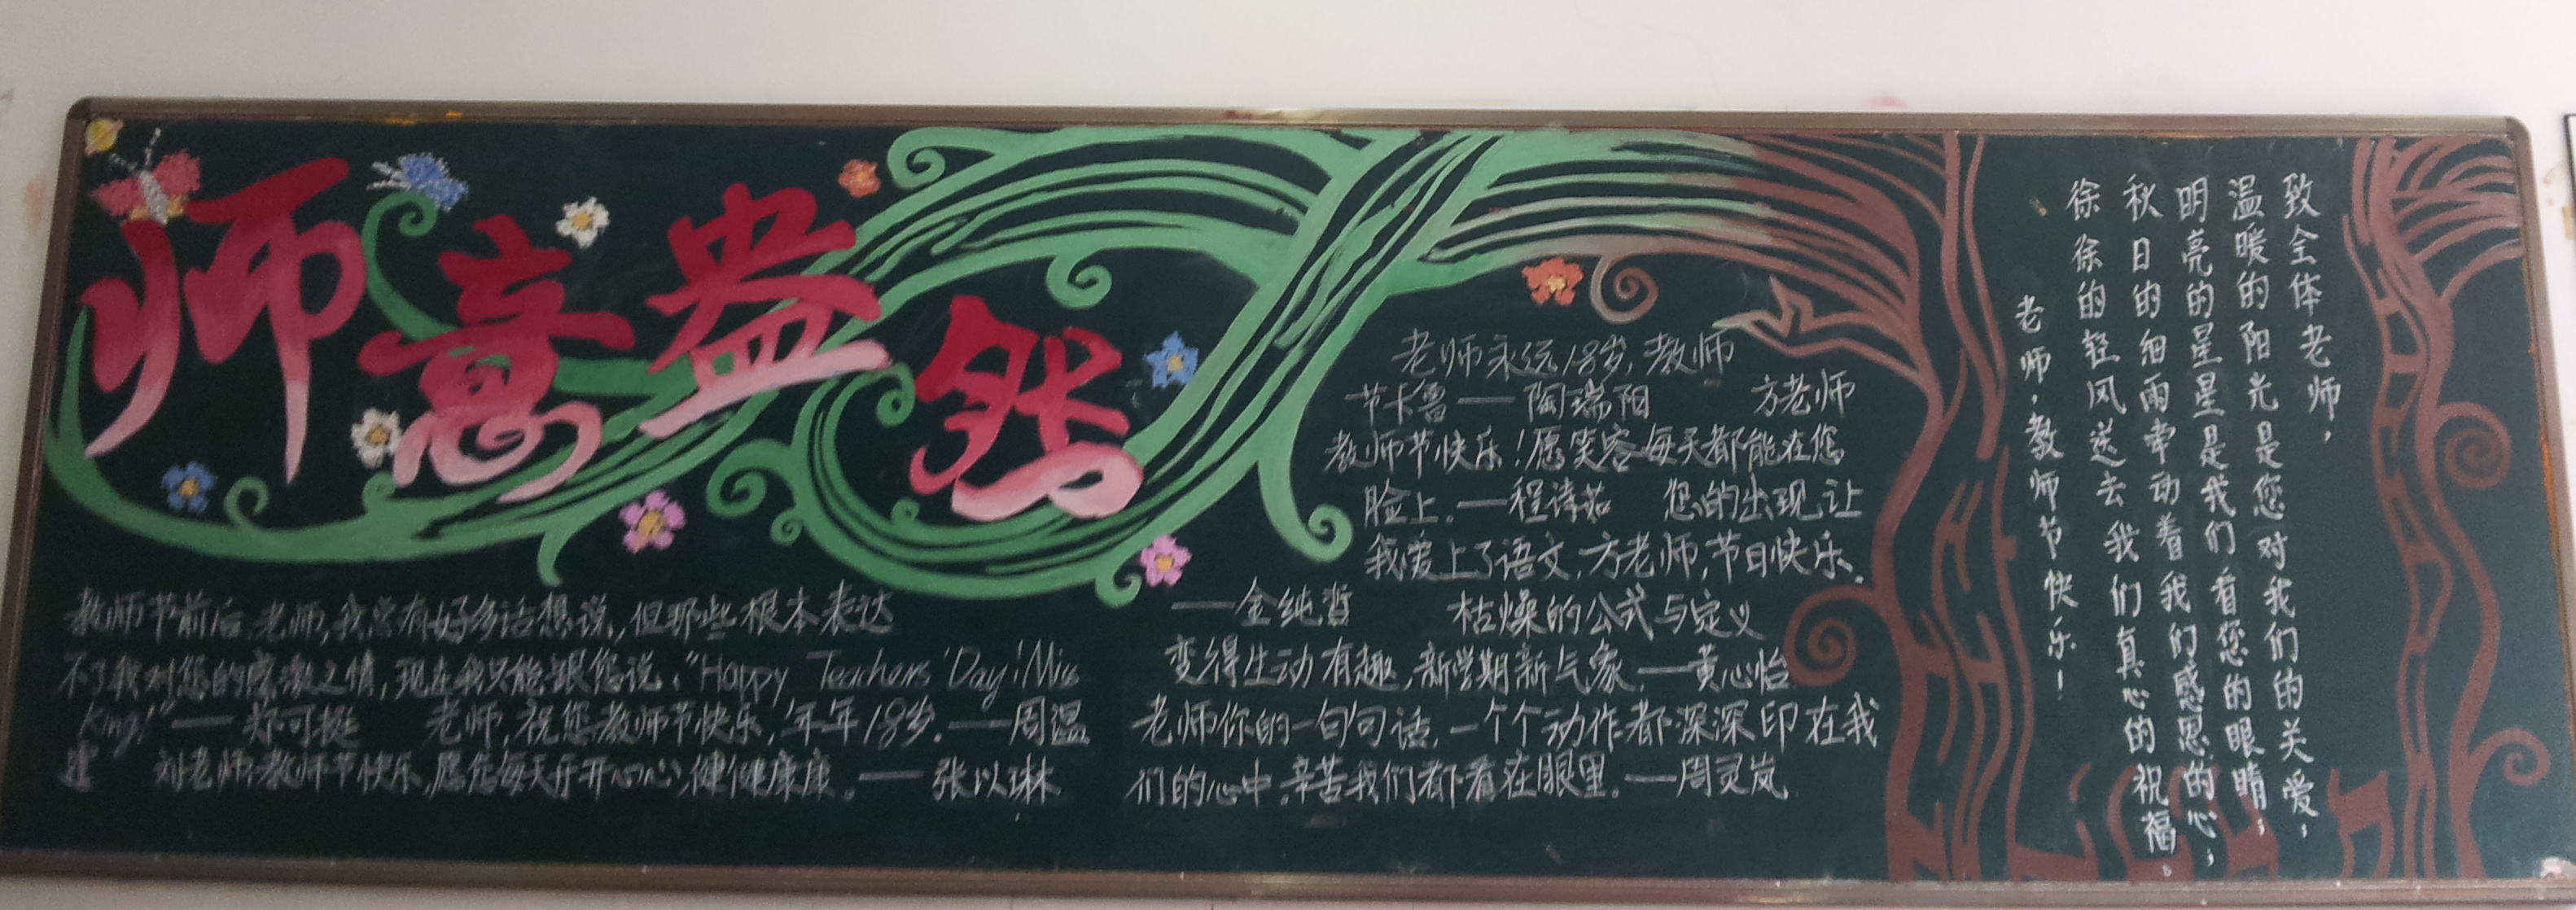 师意盎然
教师节前后,老师,我总有好多话想说,但那些根本表达
不了我对您的感激之情,现在我只能跟您说:"Happy Teachers' Day! Miss
King!"——郑可挺 老师,祝您教师节快乐,年年18岁.——周温
刘老师:教师节快乐,愿您每天开开心心,健健康康.——张以琳
老师永远18岁,教师
节卡鲁——陶瑞阳 方老师
教师节快乐!愿笑容每天都能在您
脸上.——程诗茹 您的出现,让
我爱上了语文,方老师,节日快乐.
——金纯哲 枯燥的公式与定义
变得生动有趣,新学期新气象.——黄心怡
老师你的一句句话,一个个动作都深深印在我
们的心中,辛苦我们都看在眼里.——周灵岚
致全体老师,
温暖的阳光是您对我们的关爱;
明亮的星星是我们看您的眼睛;
秋日的细雨牵动着我们感恩的心;
徐徐的轻风送去我们真心的祝福。
老师,教师节快乐!